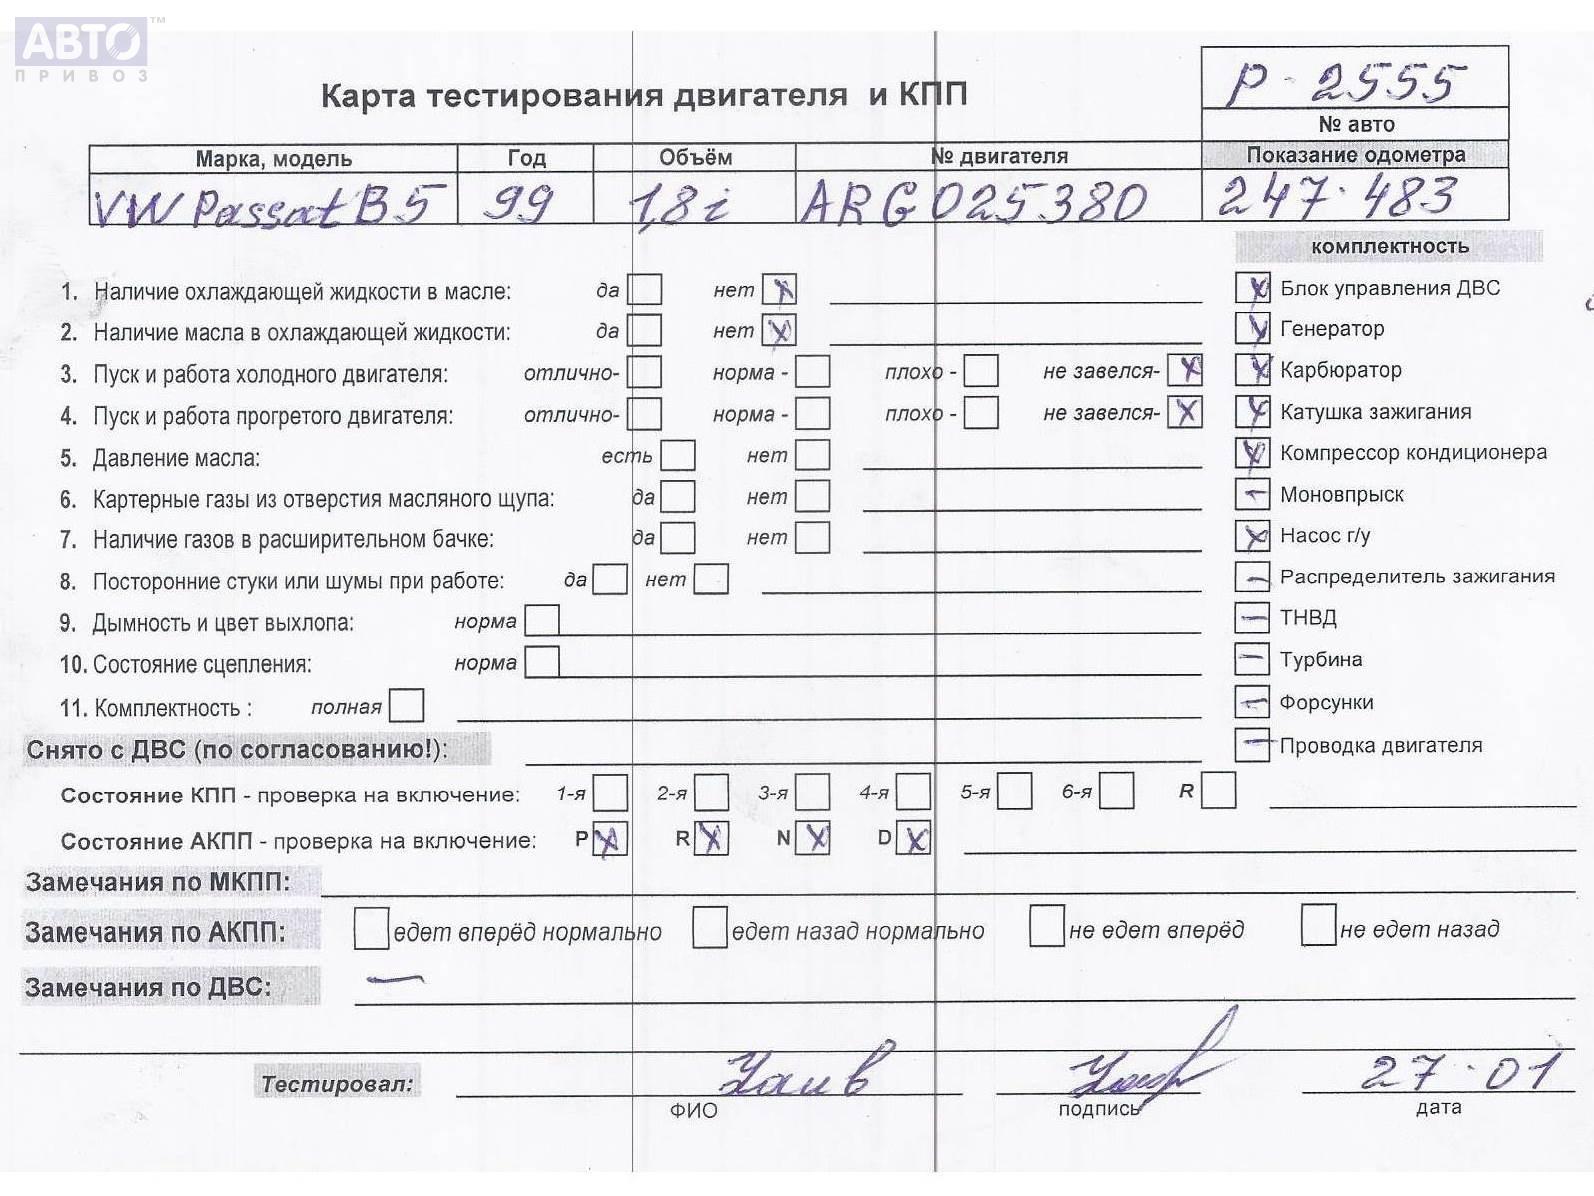 АВТО™
ПРИВОЗ
Карта тестирования двигателя и КПП
P - 2555
№ авто
Марка, модель Год Объём № двигателя Показание одометра
VW Passat B5 99 1,8i ARG 025380 247·483
комплектность
1. Наличие охлаждающей жидкости в масле: да нет X
2. Наличие масла в охлаждающей жидкости: да нет X
3. Пуск и работа холодного двигателя: отлично- норма - плохо - не завелся- X
4. Пуск и работа прогретого двигателя: отлично- норма - плохо - не завелся- X
5. Давление масла: есть нет
6. Картерные газы из отверстия масляного щупа: да нет
7. Наличие газов в расширительном бачке: да нет
8. Посторонние стуки или шумы при работе: да нет
9. Дымность и цвет выхлопа: норма
10. Состояние сцепления: норма
11. Комплектность : полная
X Блок управления ДВС
X Генератор
X Карбюратор
X Катушка зажигания
X Компрессор кондиционера
– Моновпрыск
X Насос г/у
– Распределитель зажигания
– ТНВД
– Турбина
– Форсунки
– Проводка двигателя
Снято с ДВС (по согласованию!):
Состояние КПП - проверка на включение: 1-я 2-я 3-я 4-я 5-я 6-я R
Состояние АКПП - проверка на включение: P X R X N X D X
Замечания по МКПП:
Замечания по АКПП: едет вперёд нормально едет назад нормально не едет вперёд не едет назад
Замечания по ДВС: —
Тестировал: 27·01
ФИО подпись дата